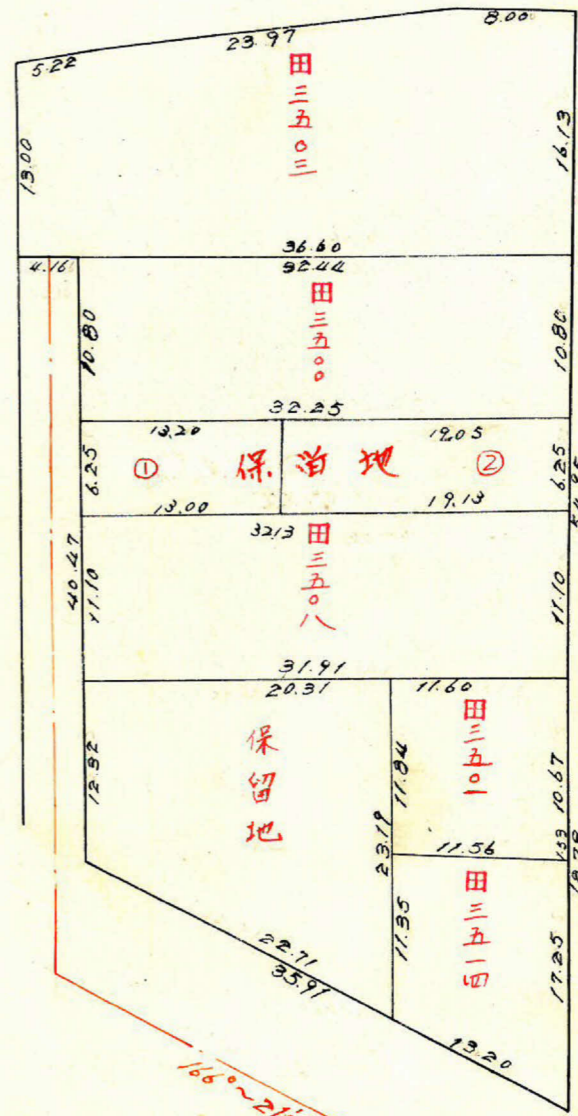 8.00
23.97
5.22
田三五〇三
13.00
16.13
36.60
4.16
32.44
田三五〇〇
10.80
10.80
32.25
13.20
19.05
6.25
①
保留地
②
6.25
13.00
19.13
32.13
田三五〇八
40.47
11.10
11.10
31.91
20.31
11.60
保留地
田三五〇一
12.32
11.84
10.67
23.19
11.56
1.53
田三五一四
11.35
17.25
22.71
35.91
13.20